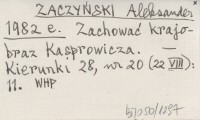 ZACZYŃSKI Aleksander
1982 e. Zachować krajo-
braz Kasprowicza. —
Kierunki 28, nr 20 (22 VIII):
11. WHP